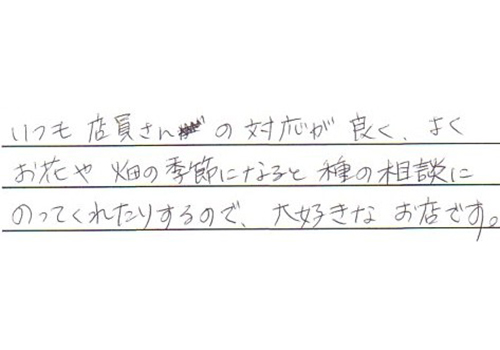 いつも店員さんの対応が良く、よく
お花や畑の季節になると種の相談に
のってくれたりするので、大好きなお店です。